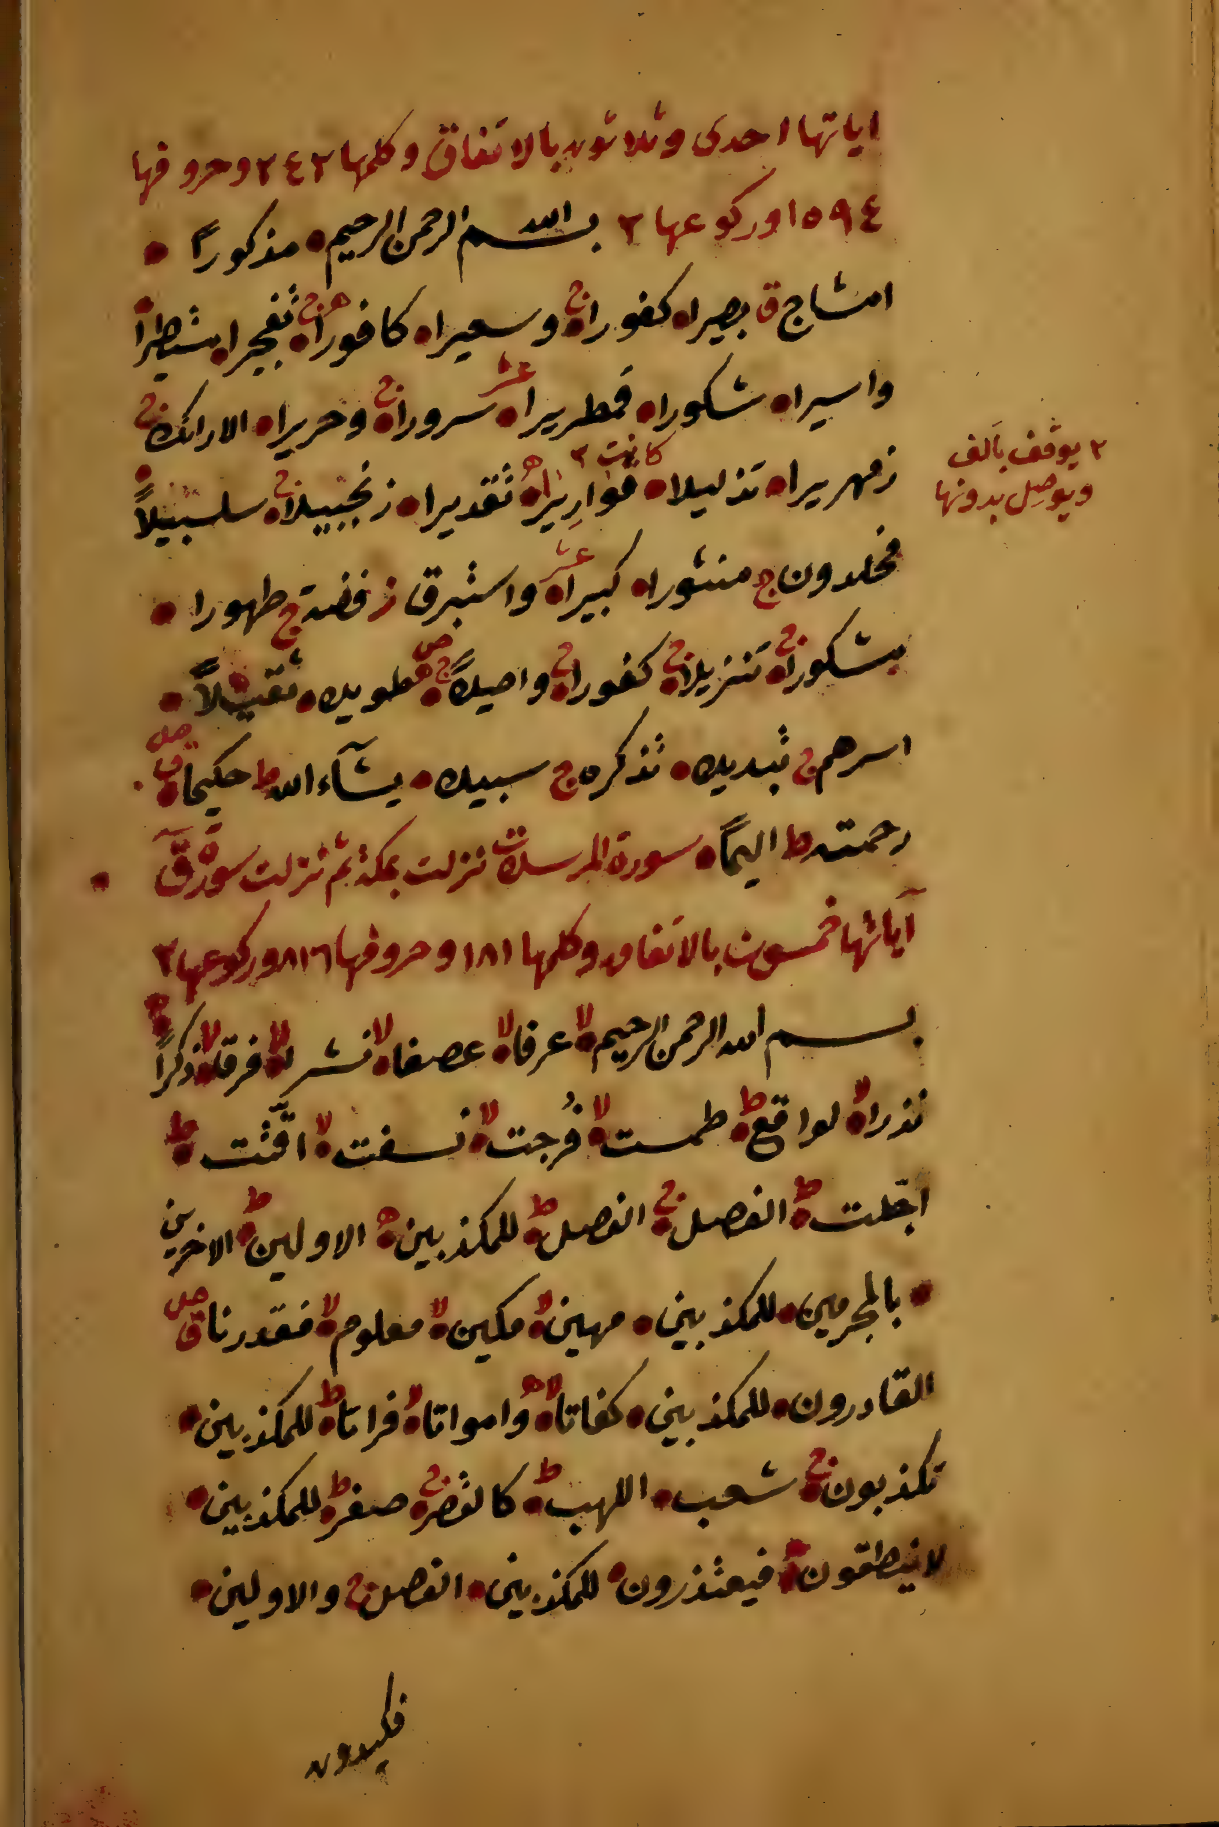 اياتها احدى وثلاثون بالاتفاق وكلمها ٢٤٢ وحروفها
١٠٥٩٤ وركوعها ٢ بسم الله الرحمن الرحيم • مذكوراً •
امشاج ق بصيرا • كفورا • ج وسعيرا • كافورا • ج ه تفجيرا • مستطيراً •
واسيرا • شكورا • قمطريرا • عشر سرورا • ج وحريرا • الارائك ج
زمهريرا • تذليلا • كانت ٢ قواريرا • ه تقديرا • زنجبيلا • ج سلسبيلاً •
مخلدون ج منثورا • كبيرا • عشر واستبرق ز فضة ج طهورا •
مشكورا • ج تنزيلا • ج كفورا • ج واصيلاً • ج صل طويلا • ثقيلاً •
اسرهم ج تبديلا • تذكرة ج سبيلا • يشآء الله ط حكيما • ق صل
رحمته ط اليماً • سورة المرسلات نزلت بمكة ثم نزلت سورة قٓ •
آياتها خمسون بالاتفاق وكلمها ١٨١ وحروفها ٨١٦ وركوعها ٢
بسم الله الرحمن الرحيم • لا عرفا • لا عصفا • لا نشرا • لا فرقا • لا ذكراً •
نذرا • لا لواقع • ط طمست • لا فُرجت • لا نسفت • لا اقّتت • ط
اجّلت • ط الفصل • ج الفصل • ط للمكذبين • ه الاولين • ط الاخرين
• بالمجرمين • للمكذبين • مهين • لا مكين • لا معلوم • لا فقدرنا ق صل
القادرون • للمكذبين • كفاتا • لا ه وامواتا • لا فراتا • ط للمكذبين •
تكذبون • ج شعب • اللهب • ط كالقصر • ج صفر • ط للمكذبين •
لا ينطقون • فيعتذرون • للمكذبين • الفصل ج والاولين •
٢ يوقف بالف
ويوصل بدونها
فكيدون